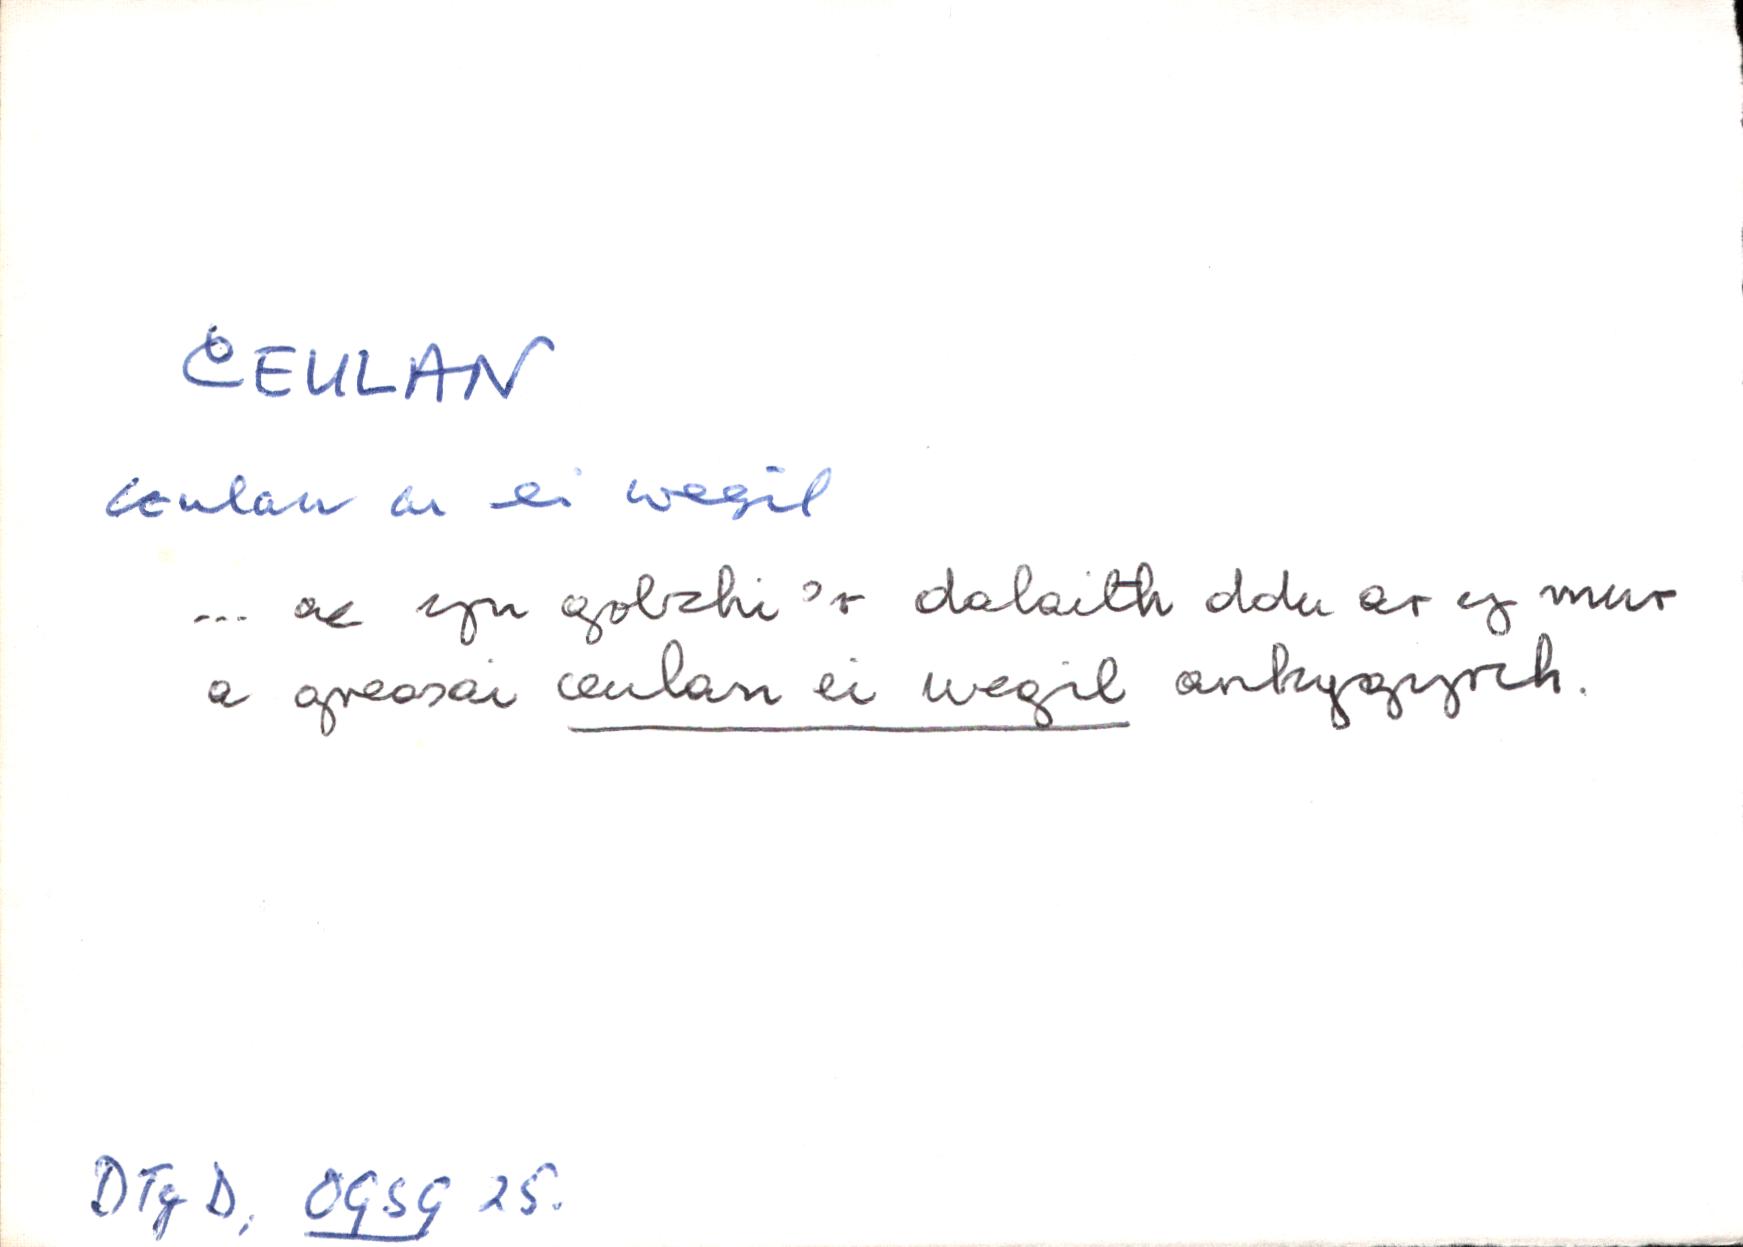 CEULAN
ceulan ar ei wegil
... ac yn golchi'r dalaith ddu ar y mur
a greasai ceulan ei wegil anhygyrch.
DTgD, OGSG 25.